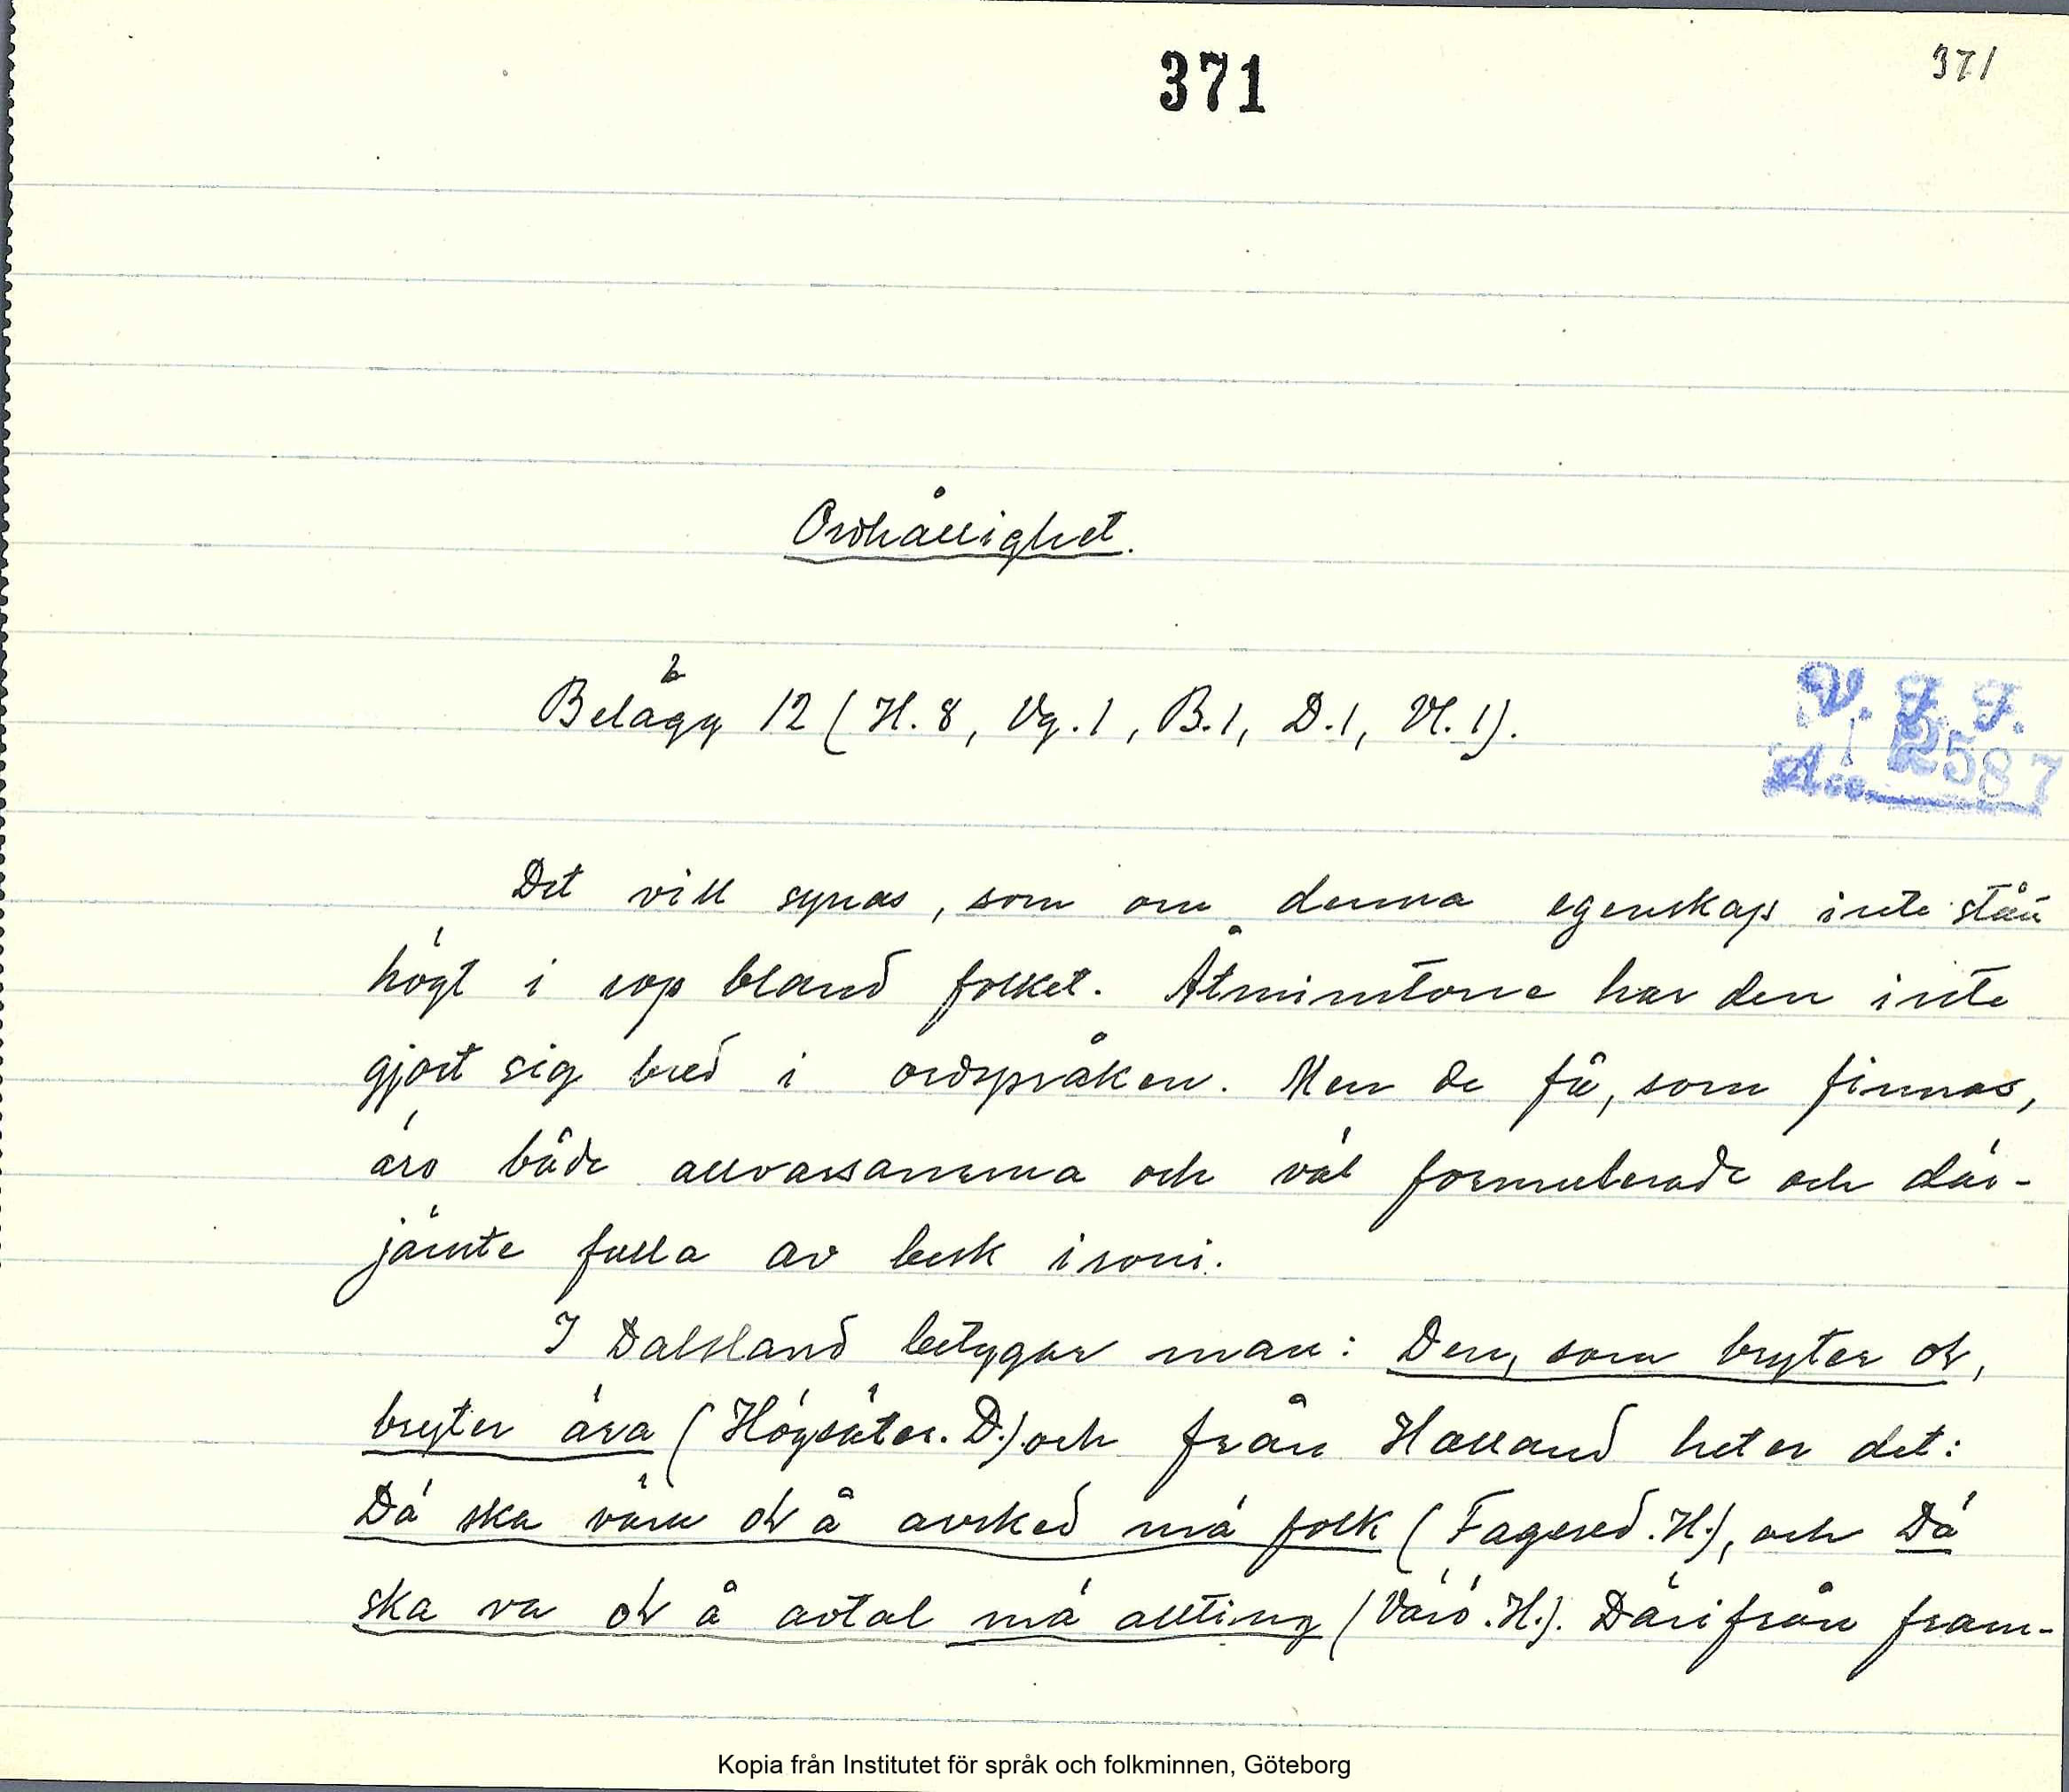 371
371
Ordhållighet.
Belägg 12 (H. 8, Vg. 1, B. 1, D. 1, Vl. 1).
V. F. F.
Acc. 2587
Det vill synas, som om denna egenskap inte står
högt i rop bland folket. Åtminstone har den inte
gjort sig bred i ordspråken. Men de få, som finnas,
äro både allvarsamma och väl formulerade och där-
jämte fulla av besk ironi.
I Dalsland betygar man: Den, som bryter ol,
bryter ära (Högsäter. D.) och från Halland heter det:
Dä ska vära ol å avsked mä folk (Fagered. H.), och Dä
ska va ol å avtal mä allting (Värö. H.). Därifrån fram-
Kopia från Institutet för språk och folkminnen, Göteborg